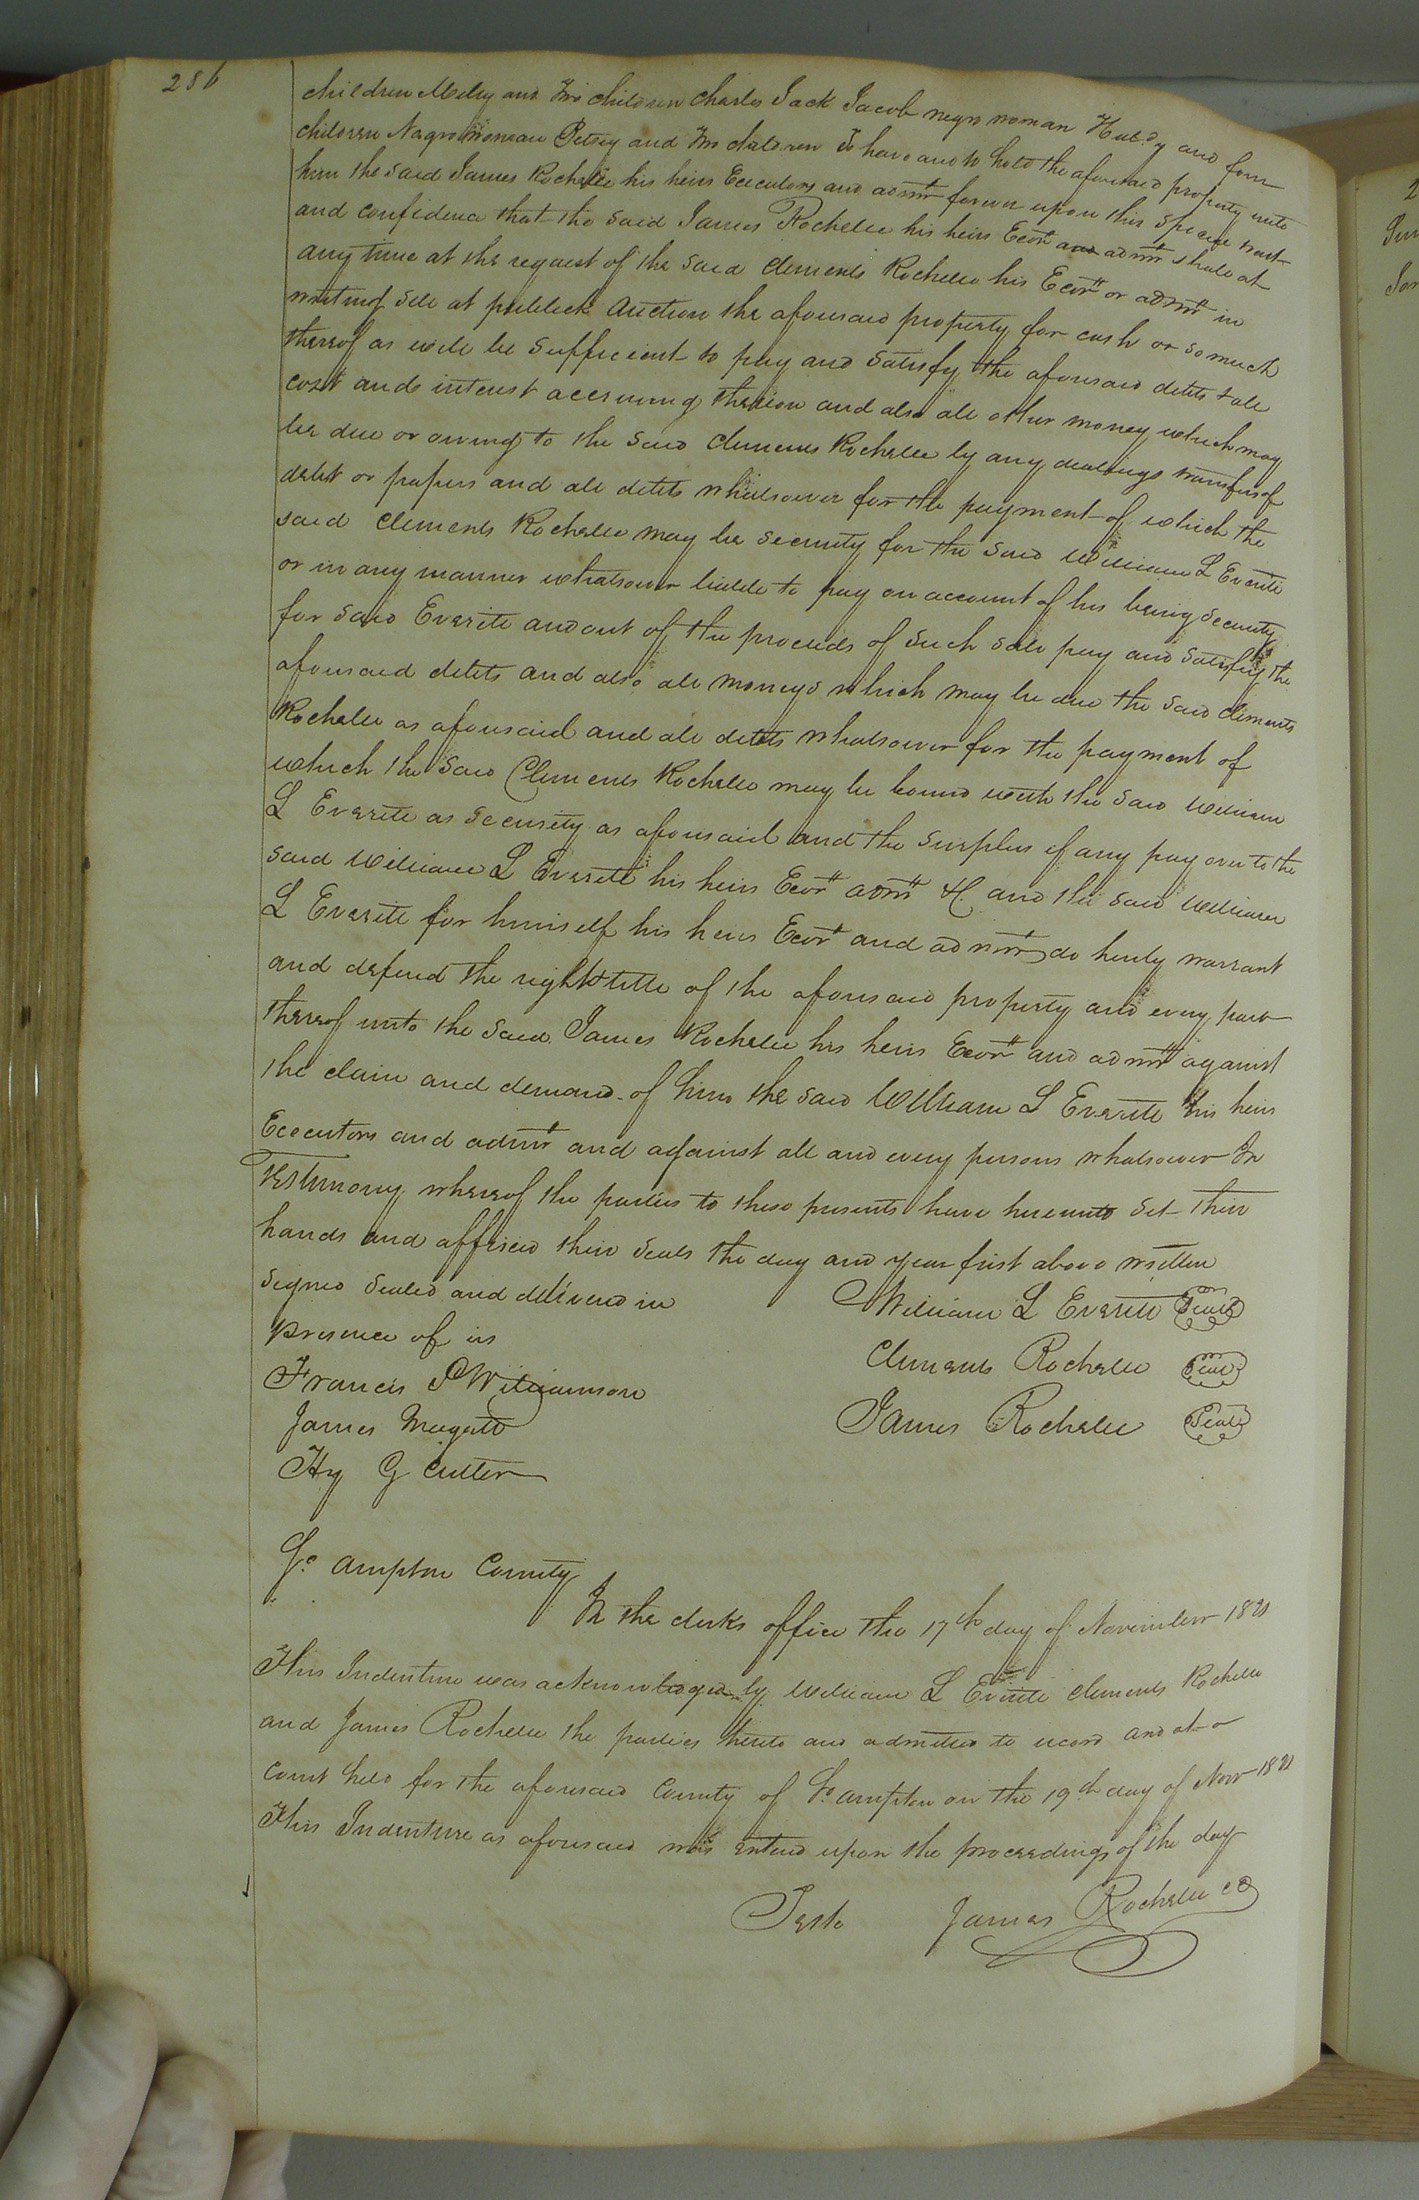 286
children Milly and two children Charles Jack Jacob negro woman and four
children Negro woman Betsey and two children To have and to hold the aforesaid property unto
him the said James Rochelle his heirs Executors and admrs forever upon this special trust
and confidence that the said James Rochelle his heirs Exors and admrs shall at
any time at the request of the said Clements Rochelle his Exors or admrs in
writing sell at publick Auction the aforesaid property for cash or so much
thereof as will be sufficient to pay and satisfy the aforesaid debts & all
cost and interest accruing thereon and also all other money which may
be due or owing to the said Clements Rochelle by any dealings transfers of
debts or papers and all debts whatsoever for the payment of which the
said Clements Rochelle may be security for the said William L Everitt
or in any manner whatsoever liable to pay on account of his being security
for said Everitt and out of the proceeds of such sale pay and satisfy the
aforesaid debts and also all moneys which may be due the said Clements
Rochelle as aforesaid and all debts whatsoever for the payment of
which the said Clements Rochelle may be bound with the said William
L Everitt as security as aforesaid and the surplus if any pay over to the
said William L Everitt his heirs Exors admrs &C. and the said William
L Everitt for himself his heirs Exors and admrs do hereby warrant
and defend the right & title of the aforesaid property and every part
thereof unto the said James Rochelle his heirs Exors and admrs against
the claim and demand of him the said William L Everitt his heirs
Executors and admrs and against all and every persons whatsoever In
Testimony whereof the parties to these presents have hereunto set their
hands and affixed their seals the day and year first above written
Signed sealed and delivered in
presence of us
William L Everitt Seal
Clements Rochelle Seal
James Rochelle Seal
Francis Williamson
James Magett
Hy G Cutler
So ampton County
In the clerks office the 17th day of November 1821
This Indenture was acknowledged by William L Everitt Clements Rochelle
and James Rochelle the parties thereto and admitted to record and at a
Court held for the aforesaid County of So ampton on the 19th day of Novr 1821
This Indenture as aforesaid was entered upon the proceedings of the day
Teste James Rochelle CC